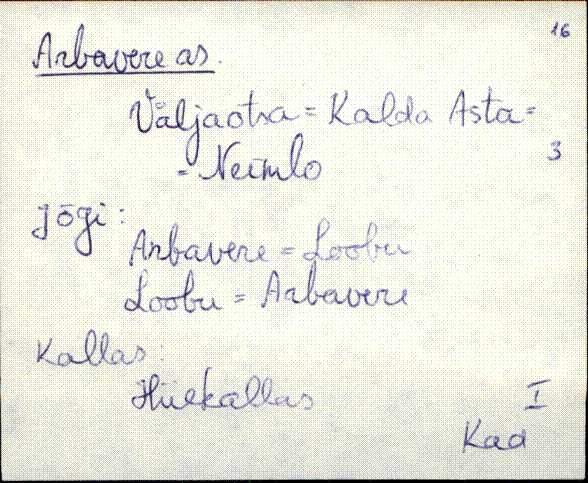 16
Arbavere as.
Väljaotsa = Kalda Asta =
= Neimlo
3
Jõgi:
Arbavere = Loobu
Loobu = Arbavere
Kallas:
Hiiekallas
I
Kad